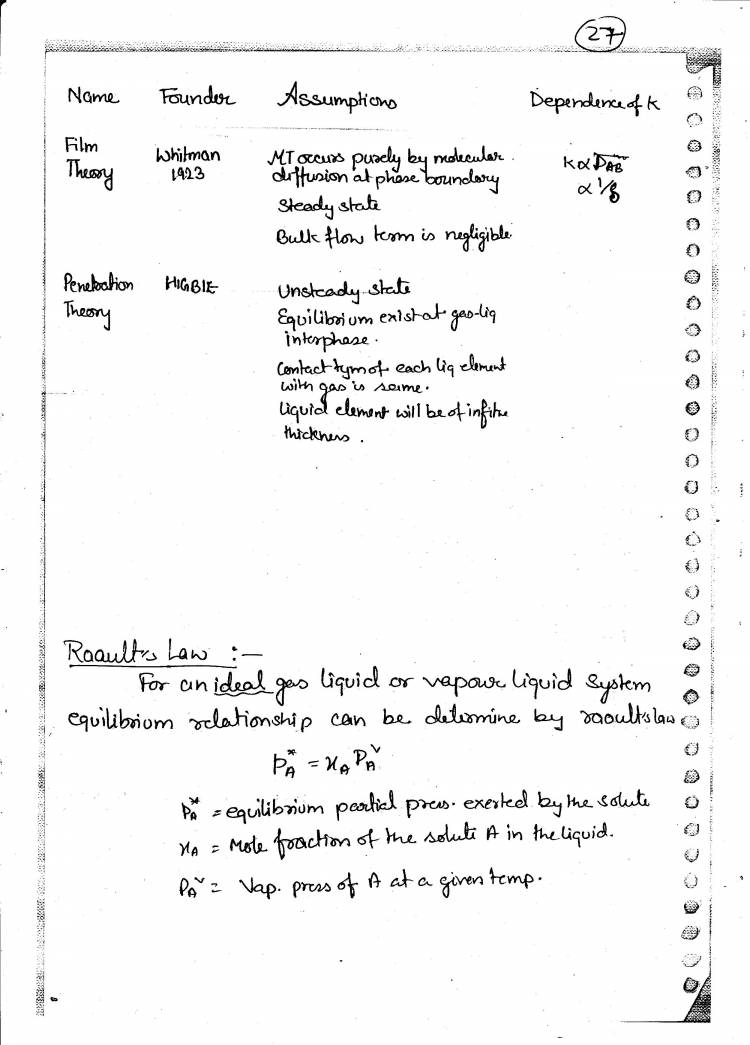 27
Name Founder Assumptions Dependence of K
Film Theory Whitman 1923 MT occurs purely by molecular diffusion at phase boundary K α D_AB
α 1/δ
Steady state
Bulk flow term is negligible.
Penetration Theory HIGBIE Unsteady state
Equilibrium exist at gas-liq
interphase.
Contact tym of each liq element
with gas is same.
liquid element will be of infite
thickness.
Raoult's Law :-
For an ideal gas liquid or vapour liquid system
equilibrium relationship can be determine by raoults law
p_A* = x_A P_A^v
p_A* = equilibrium partial press. exerted by the solute
x_A = Mole fraction of the solute A in the liquid.
P_A^v = Vap. press of A at a given temp.